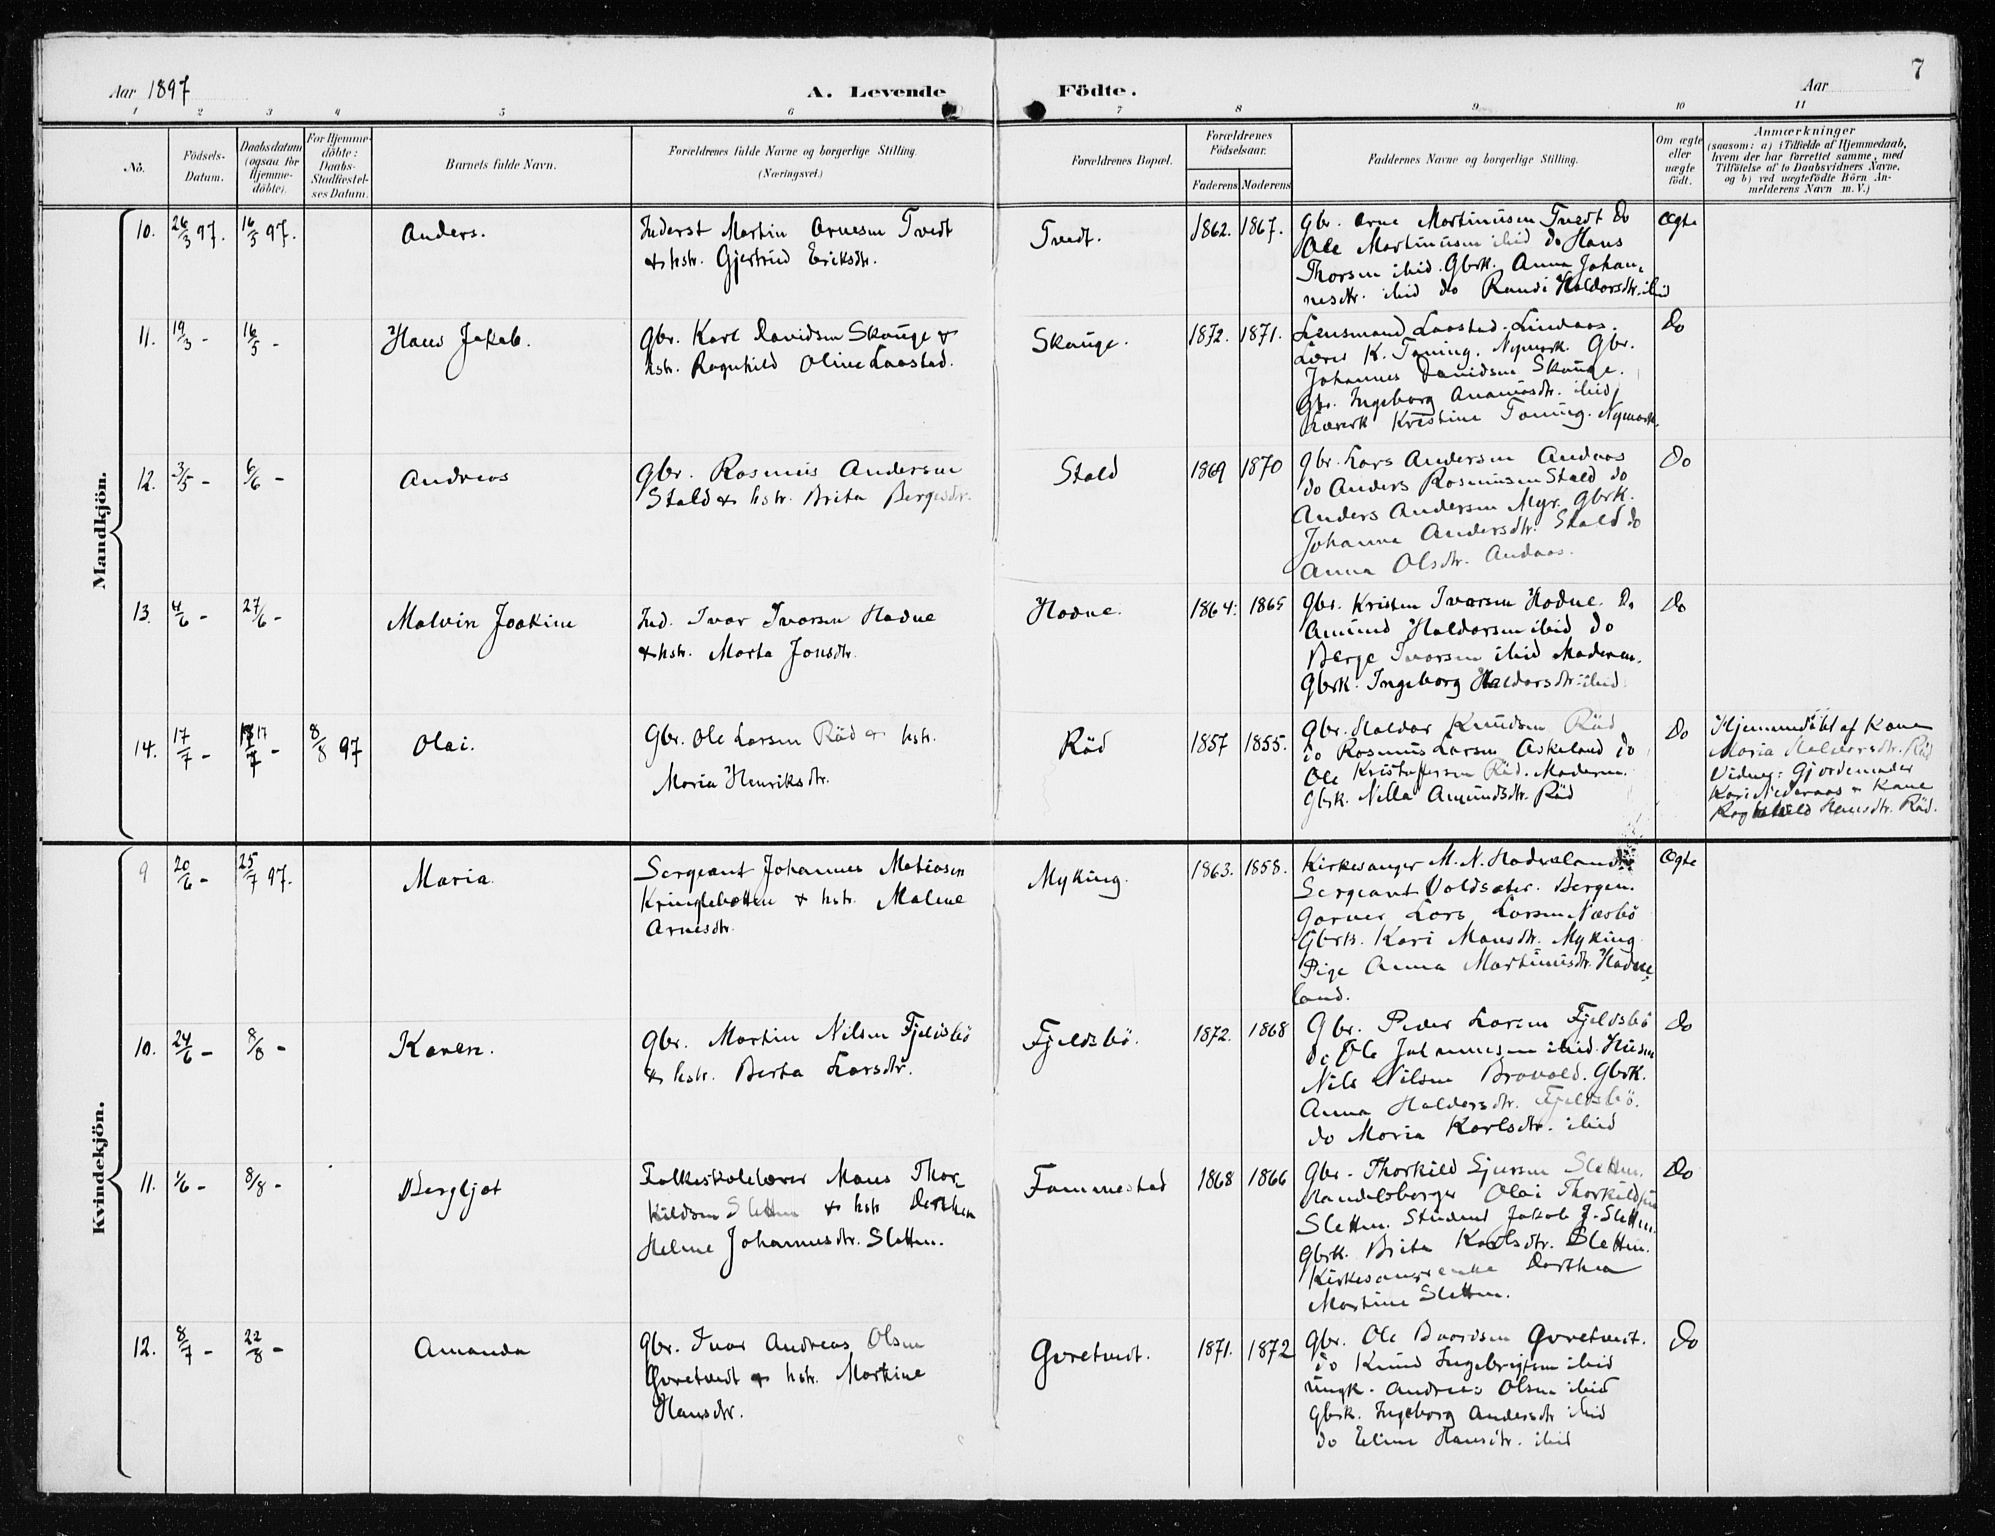 7
Aar 1897
A. Levende Födte.
Aar
1 2 3 4 5 6 7 8 9 10 11
No.
Födsels-
Datum.
Daabsdatum
(ogsaa for
Hjemme-
döbte).
For Hjemme-
döbte:
Daabs-
Stadfæstel-
ses Datum.
Barnets fulde Navn.
Forældrenes fulde Navne og borgerlige Stilling.
(Næringsvei.)
Forældrenes Bopæl.
Forældrenes
Födselsaar.
Faderens Moderens
Faddernes Navne og borgerlige Stilling.
Om ægte
eller
uægte
født.
Anmærkninger
(saasom: a) i Tilfælde af Hjemmedaab,
hvem der har forrettet samme, med
Tilföielse af to Daabsvidners Navne,
og b) ved uægtefödte Börn An-
melderens Navn m. V.)
Mandkjön.
10. 26/3 97. 16/5 97.
Anders.
Inderst Martin Arnesen Tvedt
& hstr. Gjertrud Eriksdtr.
Tvedt.
1862. 1867.
Gbr. Arne Martinusen Tvedt do
Ole Martinusen ibid do Hans
Thorsen ibid. Gbrk. Anna Johan-
nesdtr. ibid do Randi Haldorsdtr. ibid
Ægte
11. 19/3 - 16/5 -
Hans Jakob.
Gbr. Karl Davidsen Skauge &
hstr. Ragnhild Oline Laastad.
Skauge.
1872. 1871.
Lensmand Laastad. Lindaas.
Lærer K. Toning. Nymark. Gbr.
Johannes Davidsen Skauge.
Gbr. Ingeborg Ananiasdtr. ibid
Lærerk Kristine Toning. Nymark.
Do
12. 3/5 - 6/6 -
Andreas
Gbr. Rasmus Andersen
Stald & hstr. Brita Bergesdtr.
Stald
1869 1870
Gbr. Lars Andersen Andaas
do Anders Rasmusen Stald do
Anders Andersen Myr. Gbrk.
Johanna Andersdtr. Stald do
Anna Olsdtr. Andaas.
Do
13. 4/6 - 27/6 -
Malvin Joakim
Ind. Ivar Ivarsen Hodne
& hstr. Marta Jonsdtr.
Hodne.
1864. 1865
Gbr. Kristen Ivarsen Hodne. Do
Amund Haldorsen ibid do
Berge Ivarsen ibid Moderen.
Gbrk. Ingeborg Haldorsdtr. ibid
Do
14. 17/7 - 17/7 - 8/8 97
Olai.
Gbr. Ole Larsen Röd & hstr.
Maria Henriksdtr.
Röd
1857 1855.
Gbr. Haldor Knudsen Röd
do Rasmus Larsen Askeland do
Ole Kristoffersen Röd. Moderen.
Gbrk. Nilla Amundsdtr. Röd
Do
Hjemmedöbt af Kone
Maria Haldorsdtr. Röd
Vidner: Gjordemoder
Kari Nederaas & Kone
Ragnhild Hansdtr. Röd.
Kvindekjön.
9 20/6 - 25/7 97.
Maria.
Sergeant Johannes Matiasen
Kringlebotten & hstr. Malene
Arnesdtr.
Myking.
1863. 1858.
Kirkesanger M. N. Hodneland
Sergeant Voldsæter. Bergen.
Garver Lars Larsen Næsbö
Gbrk. Kari Monsdtr. Myking
Pige Anna Martinusdtr. Hodne-
land.
Ægte
10. 24/6 - 8/8 -
Karen.
Gbr. Martin Nilsen Fjeldsbö
& hstr. Berta Larsdtr.
Fjeldsbö.
1872. 1868
Gbr. Peder Larsen Fjeldsbö
do Ole Johannesen ibid. Husm
Nils Nilsen Brovold. Gbrk.
Anna Haldorsdtr. Fjeldsbö.
do Maria Karlsdtr. ibid
Do
11. 1/6 - 8/8 -
Bergljot
Folkeskolelærer Mons Thor-
kildsen Sletten & hstr Dorthea
Helene Johannesdtr. Sletten.
Fammestad
1868 1866
Gbr. Thorkild Sjursen Sletten.
Handelsborger Olai Thorkildsen
Sletten. Student Jakob J. Sletten.
Gbrk. Brita Karlsdtr. Sletten.
Kirkesangerenke Dorthea
Martine Sletten.
Do
12. 8/7 - 22/8 -
Amanda
Gbr. Ivar Andreas Olsen
Qvretvedt & hstr. Martine
Hansdtr.
Qvretvedt.
1871. 1872
Gbr. Ole Baardsen Qvretvedt.
do Knud Ingebrigtsen ibid
Ungk. Andreas Olsen ibid
Gbrk. Ingeborg Andersdtr ibid
do Eline Hansdtr. ibid
Do